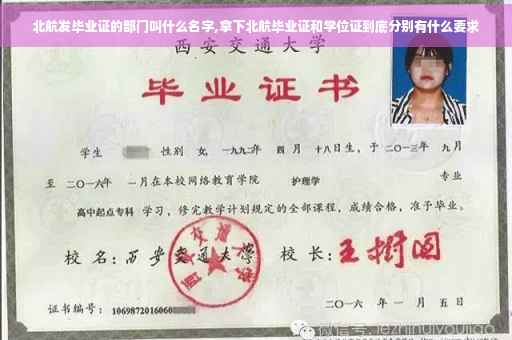 北航发毕业证的部门叫什么名字,拿下北航毕业证和学位证到底分别有什么要求
西安交通大学
毕业证书
学生 性别 女, 一九九二年 四月 十八日生, 于二〇一三年 九月
至 二〇一六年 一月在本校网络教育学院 护理学 专业
高中起点专科 学习, 修完教学计划规定的全部课程, 成绩合格, 准予毕业。
校名: 西安交通大学 校长: 王树国
西安交通大学
证书编号: 1069872016060
二〇一六年 一月 五日
微信号: jiezhinuiyoujiao